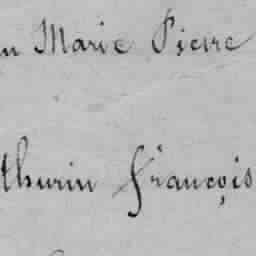 n Marie Pierre
thurin françois